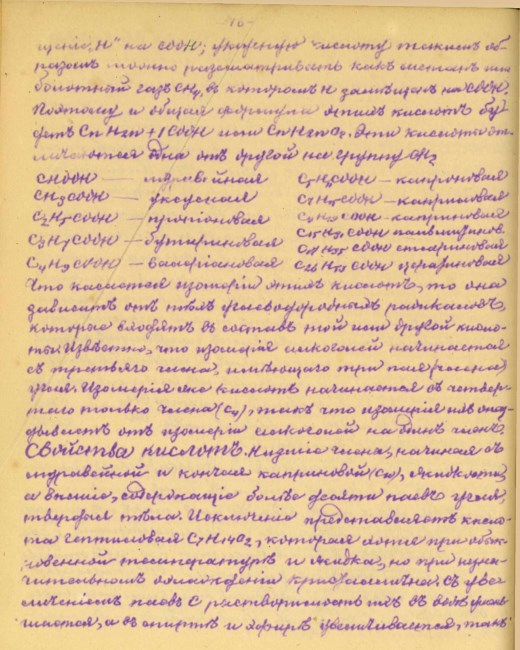 щенію „Н" на СООН; уксусную кислоту такимъ об-
разомъ можно разсматривать какъ метанъ или
болотный газъ СН4, въ которомъ Н замѣщенъ на СООН.
Поэтому и общая формула этихъ кислотъ бу-
детъ CnH2n+1COOH или CnH2nO2. Эти кислоты от-
личаются одна отъ другой на группу СН2
СНООН — муравьиная С5Н11СООН — капроновая
СН3СООН — уксусная СООН — каприловая
С2Н5СООН — пропіоновая СООН — каприновая
С3Н7СООН — бутириновая С15Н31СООН пальмитинов.
С4Н9СООН — валеріановая С17Н35СООН стеариновая
СООН церотиновая
Что касается изомеріи этихъ кислотъ, то она
зависитъ отъ тѣхъ углеводородныхъ радикаловъ,
которые входятъ въ составъ той или другой кисло-
ты. Извѣстно, что изомерія алкоголей начинается
съ третьяго члена, имѣющаго три пая (члена)
угля. Изомерія же кислотъ начинается съ четвер-
таго только члена (С4), такъ что изомерія ихъ опаз-
дываетъ отъ изомеріи алкоголей на одинъ членъ.
Свойства кислотъ. Низшіе члены, начиная съ
муравьиной и кончая каприновой (С10), жидкости,
а высшіе, содержащіе болѣе десяти паевъ угля,
твердыя тѣла. Исключеніе представляетъ кисло-
та гептиловая С7Н14О2, которая хотя при обык-
новенной температурѣ и жидка, но при незна-
чительномъ охлажденіи кристаллична. Съ уве-
личеніемъ паевъ С растворимость ихъ въ водѣ умень-
шается, а въ спиртѣ и эфирѣ увеличивается, такъ